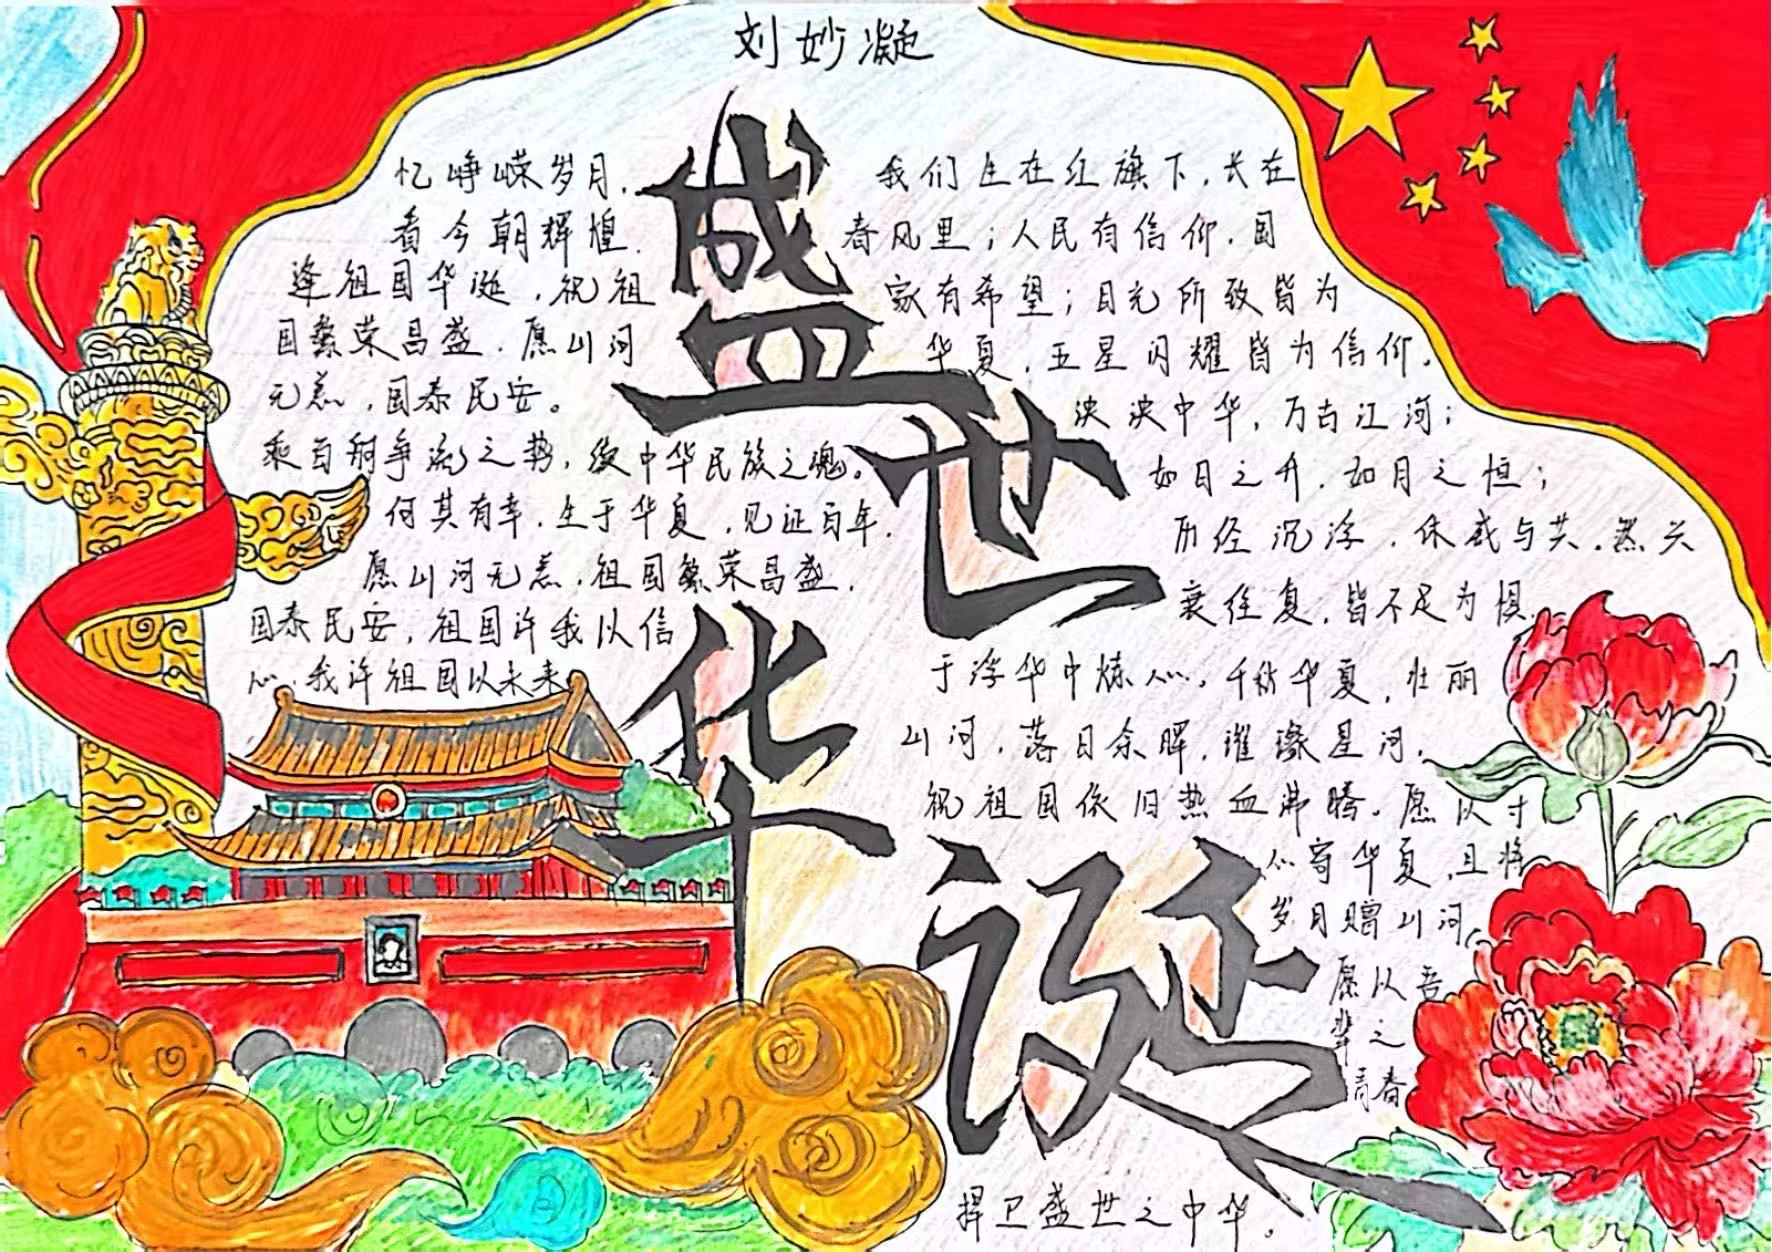 刘妙凝
盛世华诞
忆峥嵘岁月，
看今朝辉煌.
逢祖国华诞，祝祖
国繁荣昌盛.愿山河
无恙，国泰民安。
乘百舸争流之势，绽中华民族之魂。
何其有幸，生于华夏，见证百年.
愿山河无恙，祖国繁荣昌盛.
国泰民安，祖国许我以信
心，我许祖国以未来
我们生在红旗下，长在
春风里；人民有信仰，国
家有希望；目光所致皆为
华夏，五星闪耀皆为信仰。
泱泱中华，万古江河；
如日之升，如月之恒；
历经沉浮，休戚与共，然兴
衰往复，皆不足为惧.
于浮华中炼心，千秋华夏，壮丽
山河，落日余晖，璀璨星河，
祝祖国依旧热血沸腾。愿以寸
心寄华夏，且将
岁月赠山河，
愿以吾
辈之
青春
捍卫盛世之中华。